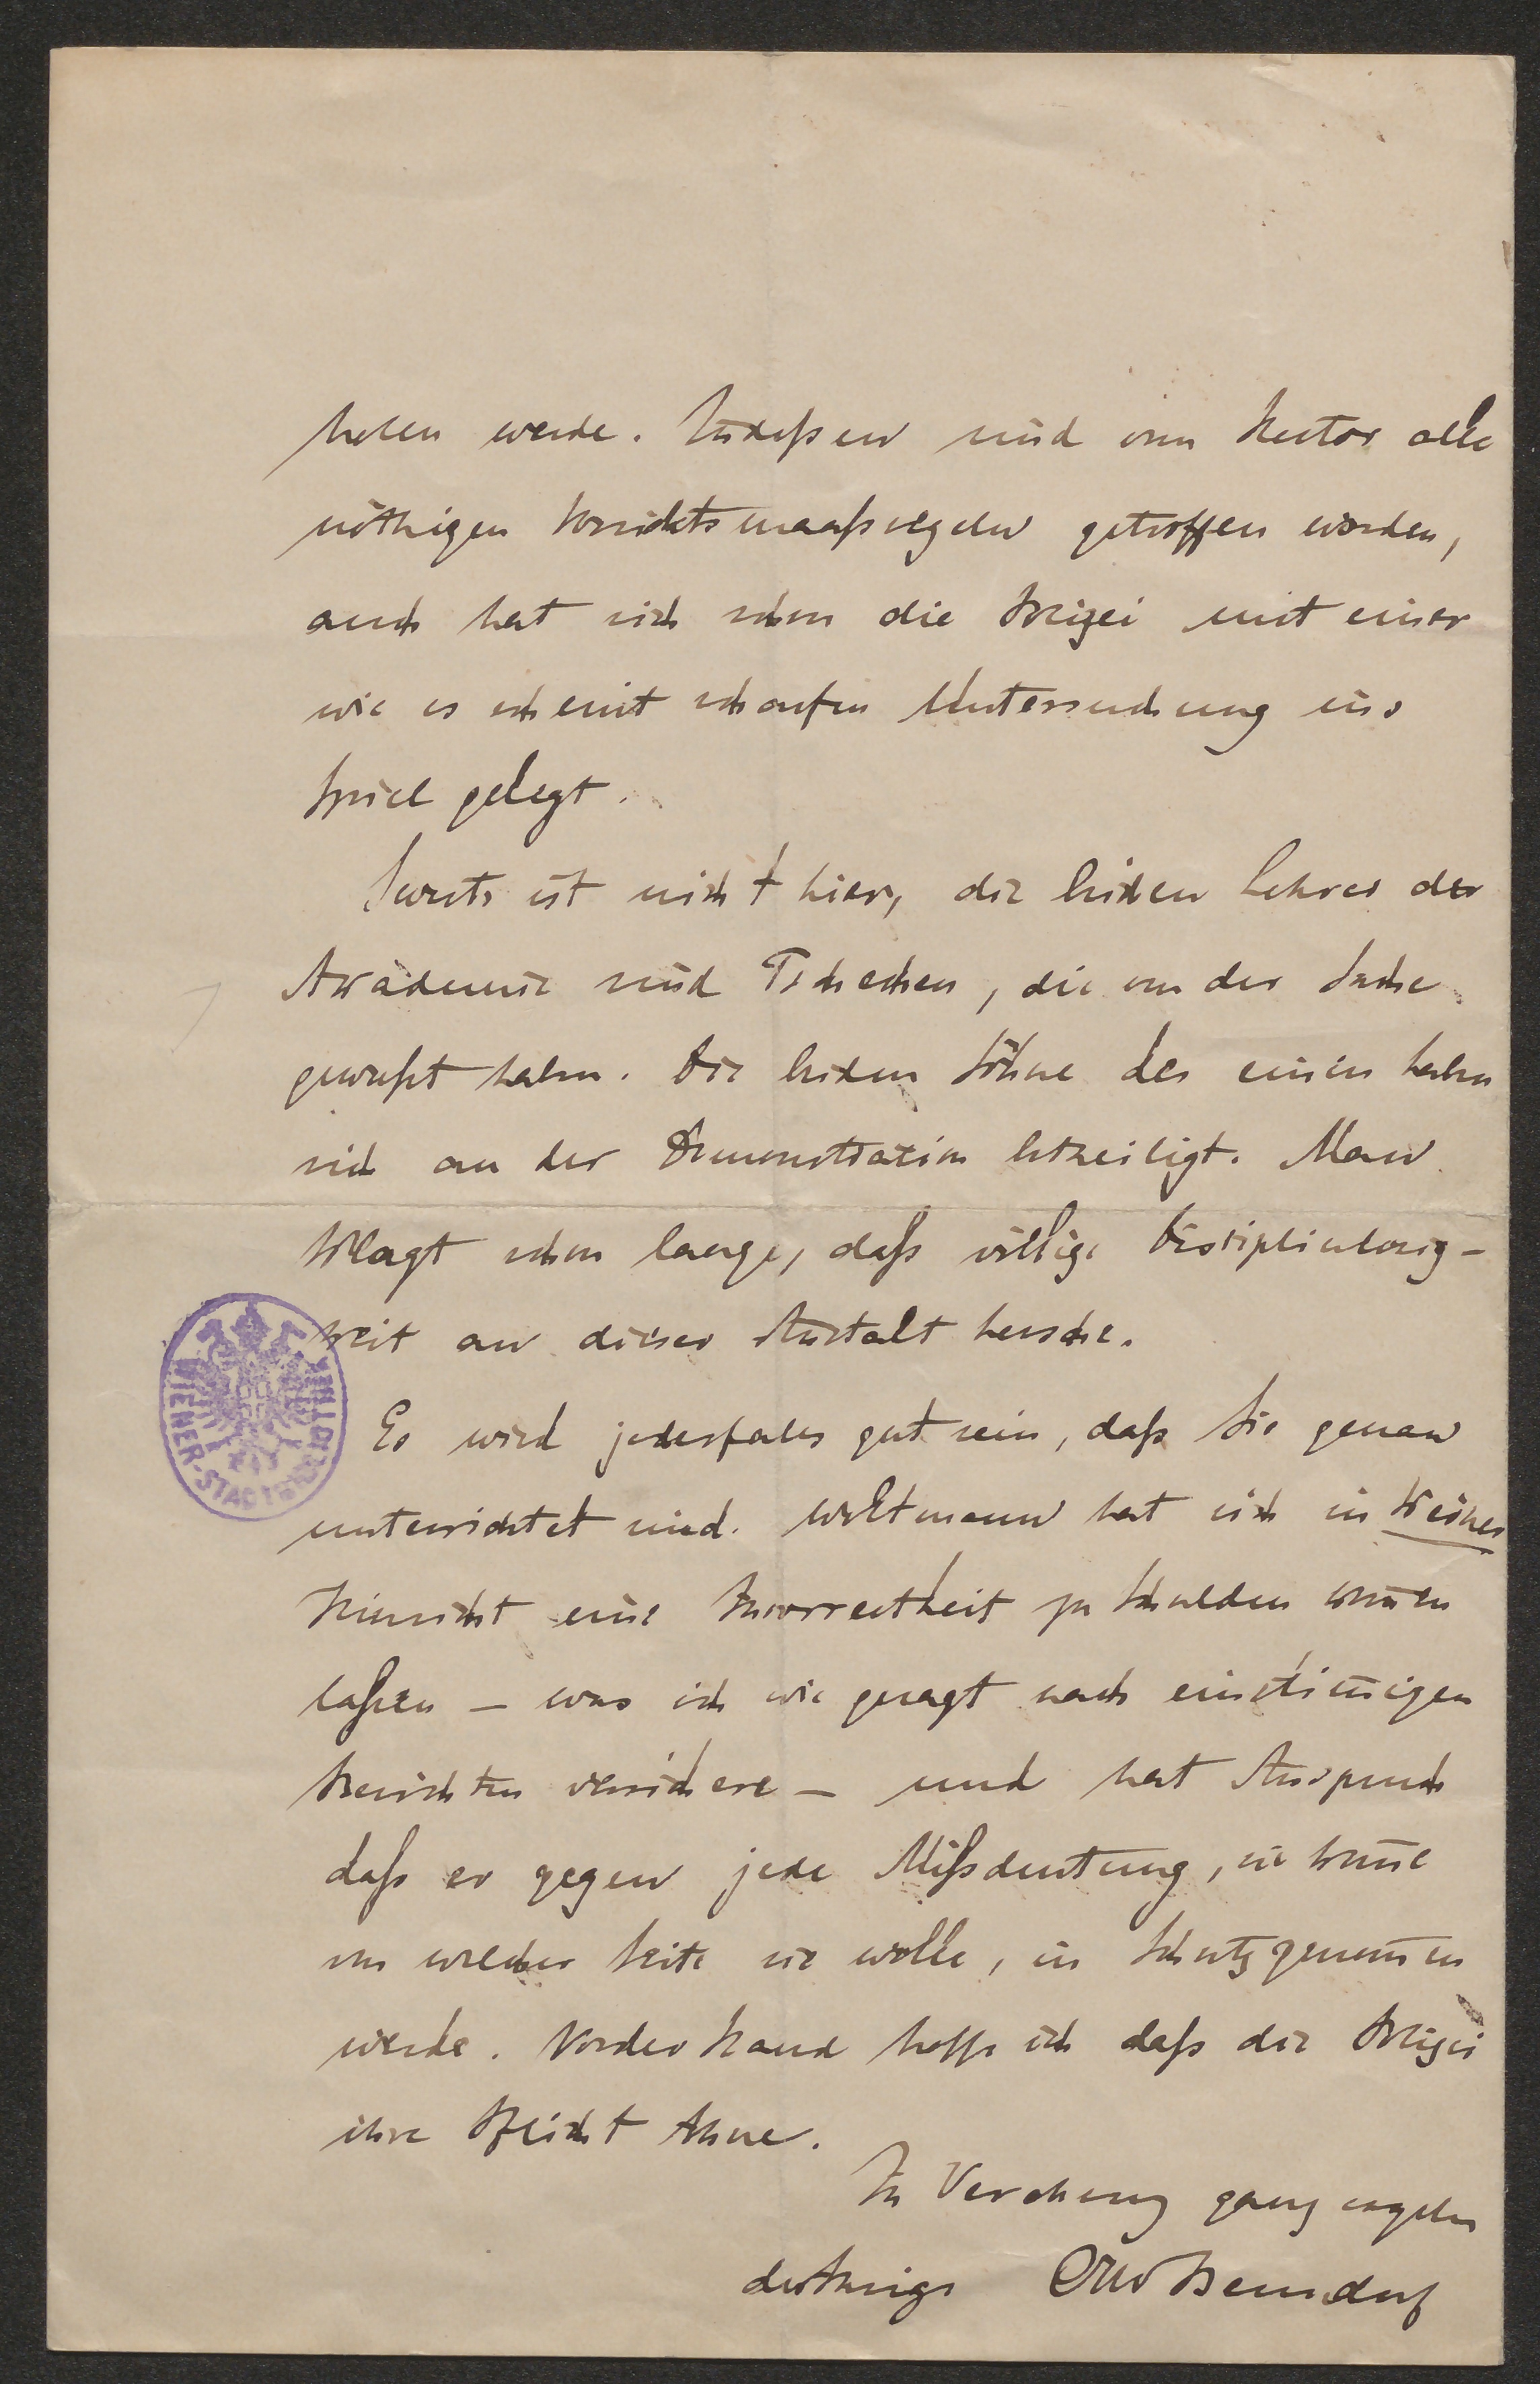 holen werde. Indeßen sind vom Rector alle
nöthigen Vorsichtsmaaßregeln getroffen worden,
auch hat sich schon die Polizei mit einer
wie es scheint scharfen Untersuchung ins
Spiel gelegt.
ist nicht hier, die beiden Lehrer der
Akademie sind Tschechen, die von der Sache
gewußt haben. Die beiden Söhne des einen haben
sich an der Demonstration betheiligt. Man
klagt schon lange, daß völlige Disciplinlosig-
keit an dieser Anstalt hersche.
Es wird jedesfalls gut sein, daß Sie genau
unterrichtet sind. Woltmann hat sich in keiner
Hinsicht eine Incorrectheit zu Schulden kom̄en
laßen – was ich wie gesagt nach einstim̄igen
Berichten versichere – und hat Anspruch
daß er gegen jede Mißdeutung, sie kom̄e
von welcher Seite sie wolle, in Schutz genom̄en
werde. Vorderhand hoffe ich daß die Polizei
ihre Pflicht thue.
In Verehrung ganz ergeben
der Ihrige Otto Benndorf
WIENER-STADTBIBLIOTHEK